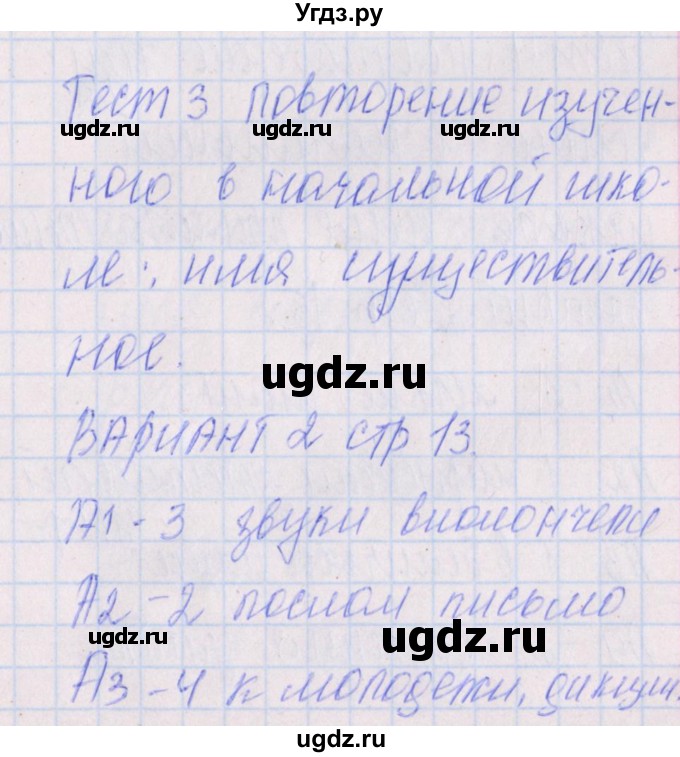 Угдз.ру
Тест 3 повторение изучен-
ugdz.ru ugdz.ru ugdz.ru
ного в начальной шко-
ле: имя существитель-
ное.
ugdz.ru
ВАРИАНТ 2 стр 13.
А1 - 3 звуки виолончели
А2 - 2 послом письмо
ugdz.ru ugdz.ru
А3 - 4 к молодежи, дикции.
ugdz.ru